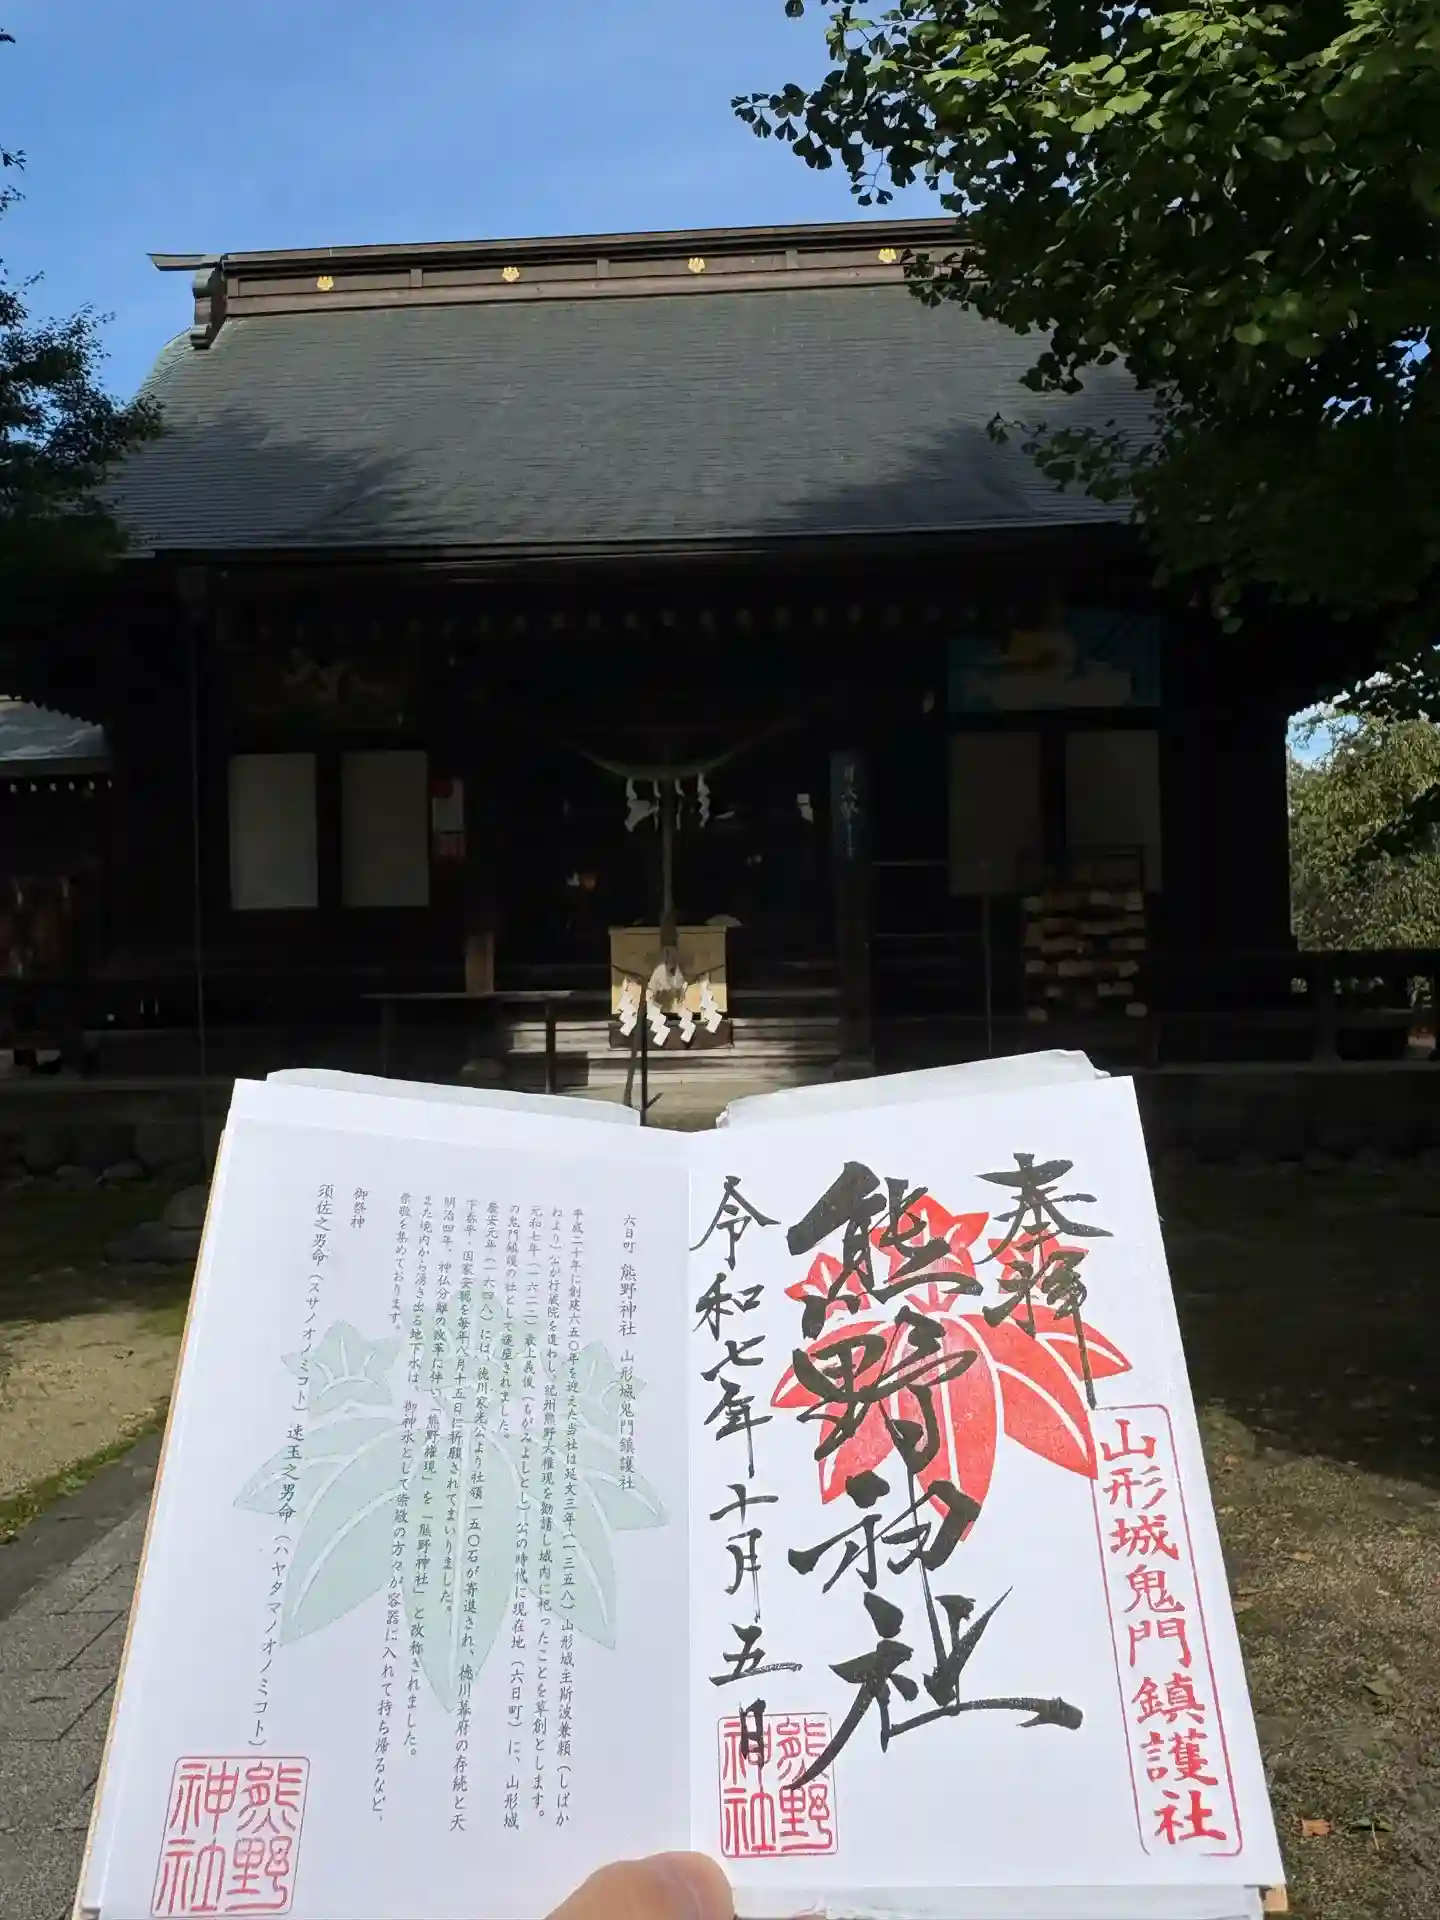 奉拝
熊野神社
令和七年十月五日
山形城鬼門鎮護社
熊野
神社
六日町 熊野神社 山形城鬼門鎮護社
平成二十年に創建六五〇年を迎えた当社は延文三年(一三五八)山形城主斯波兼頼(しばか
ねより)公が行蔵院を遣わし、紀州熊野大権現を勧請し城内に祀ったことを草創とします。
元和七年(一六二一)最上義俊(もがみよしとし)公の時代に現在地(六日町)に、山形城
の鬼門鎮護の社として遷座されました。
慶安元年(一六四八)には、徳川家光公より社領一五〇石が寄進され、徳川幕府の存続と天
下泰平・国家安穏を毎年八月十五日に祈願されてまいりました。
明治四年、神仏分離の改革に伴い、「熊野権現」を「熊野神社」と改称されました。
また境内から湧き出る地下水は、御神水として崇敬の方々が容器に入れて持ち帰るなど、
崇敬を集めております。
御祭神
須佐之男命(スサノオノミコト) 速玉之男命(ハヤタマノオノミコト)
熊野
神社